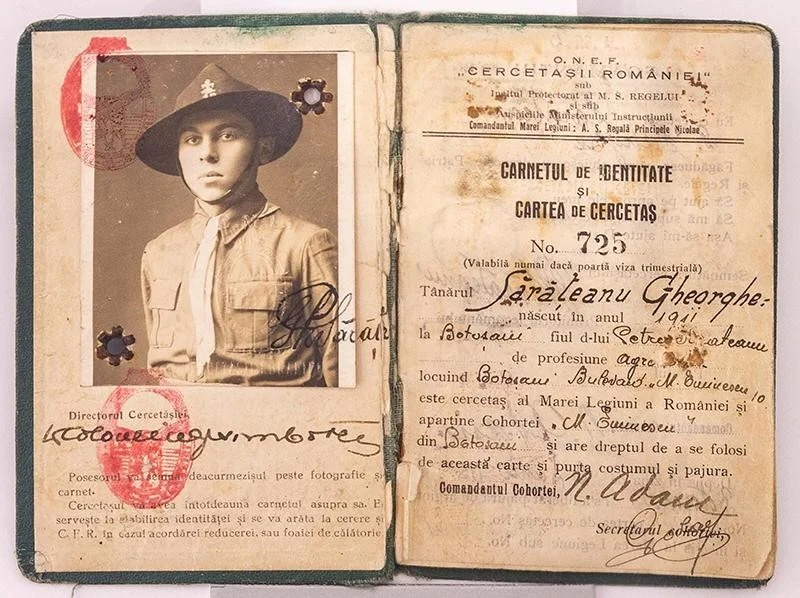 Directorul Cercetăşiei
Posesorul va semna deacurmezişul peste fotografie şi
carnet.
Cercetaşul va avea întotdeauna carnetul asupra sa. El
serveşte la stabilirea identităţei şi se va arăta la cerere şi
C. F. R. în cazul acordărei reducerei, sau foaiei de călătorie.
O. N. E. F.
„CERCETAŞII ROMÂNIEI"
sub
Înaltul Protectorat al M. S. REGELUI
şi sub
Auspiciile Ministerului Instrucţiunii
Comandantul Marei Legiuni: A. S. Regală Principele Nicolae
CARNETUL DE IDENTITATE
ŞI
CARTEA DE CERCETAŞ
No. 725
(Valabilă numai dacă poartă viza trimestrială)
Tânărul Sărăţeanu Gheorghe
născut în anul 1911
la Botoşani fiul d-lui Petre
de profesiune agro
locuind Botoşani Bulevard „M. Eminescu" 10
este cercetaş al Marei Legiuni a României şi
aparţine Cohortei „M. Eminescu"
din Botoşani şi are dreptul de a se folosi
de această carte şi purta costumul şi pajura.
Comandantul Cohortei, N. Adam
Secretarul cohortei,